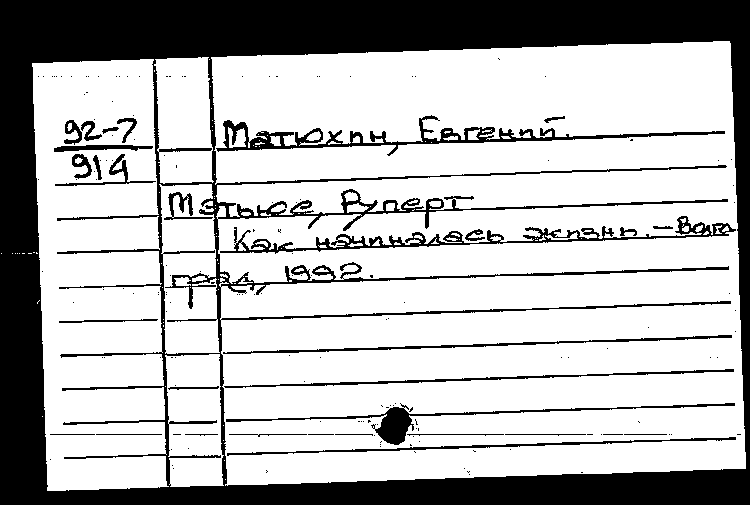 92-7
914
Матюхин, Евгений.
Мэтьюс, Руперт
Как начиналась жизнь. – Волго
град, 1992.